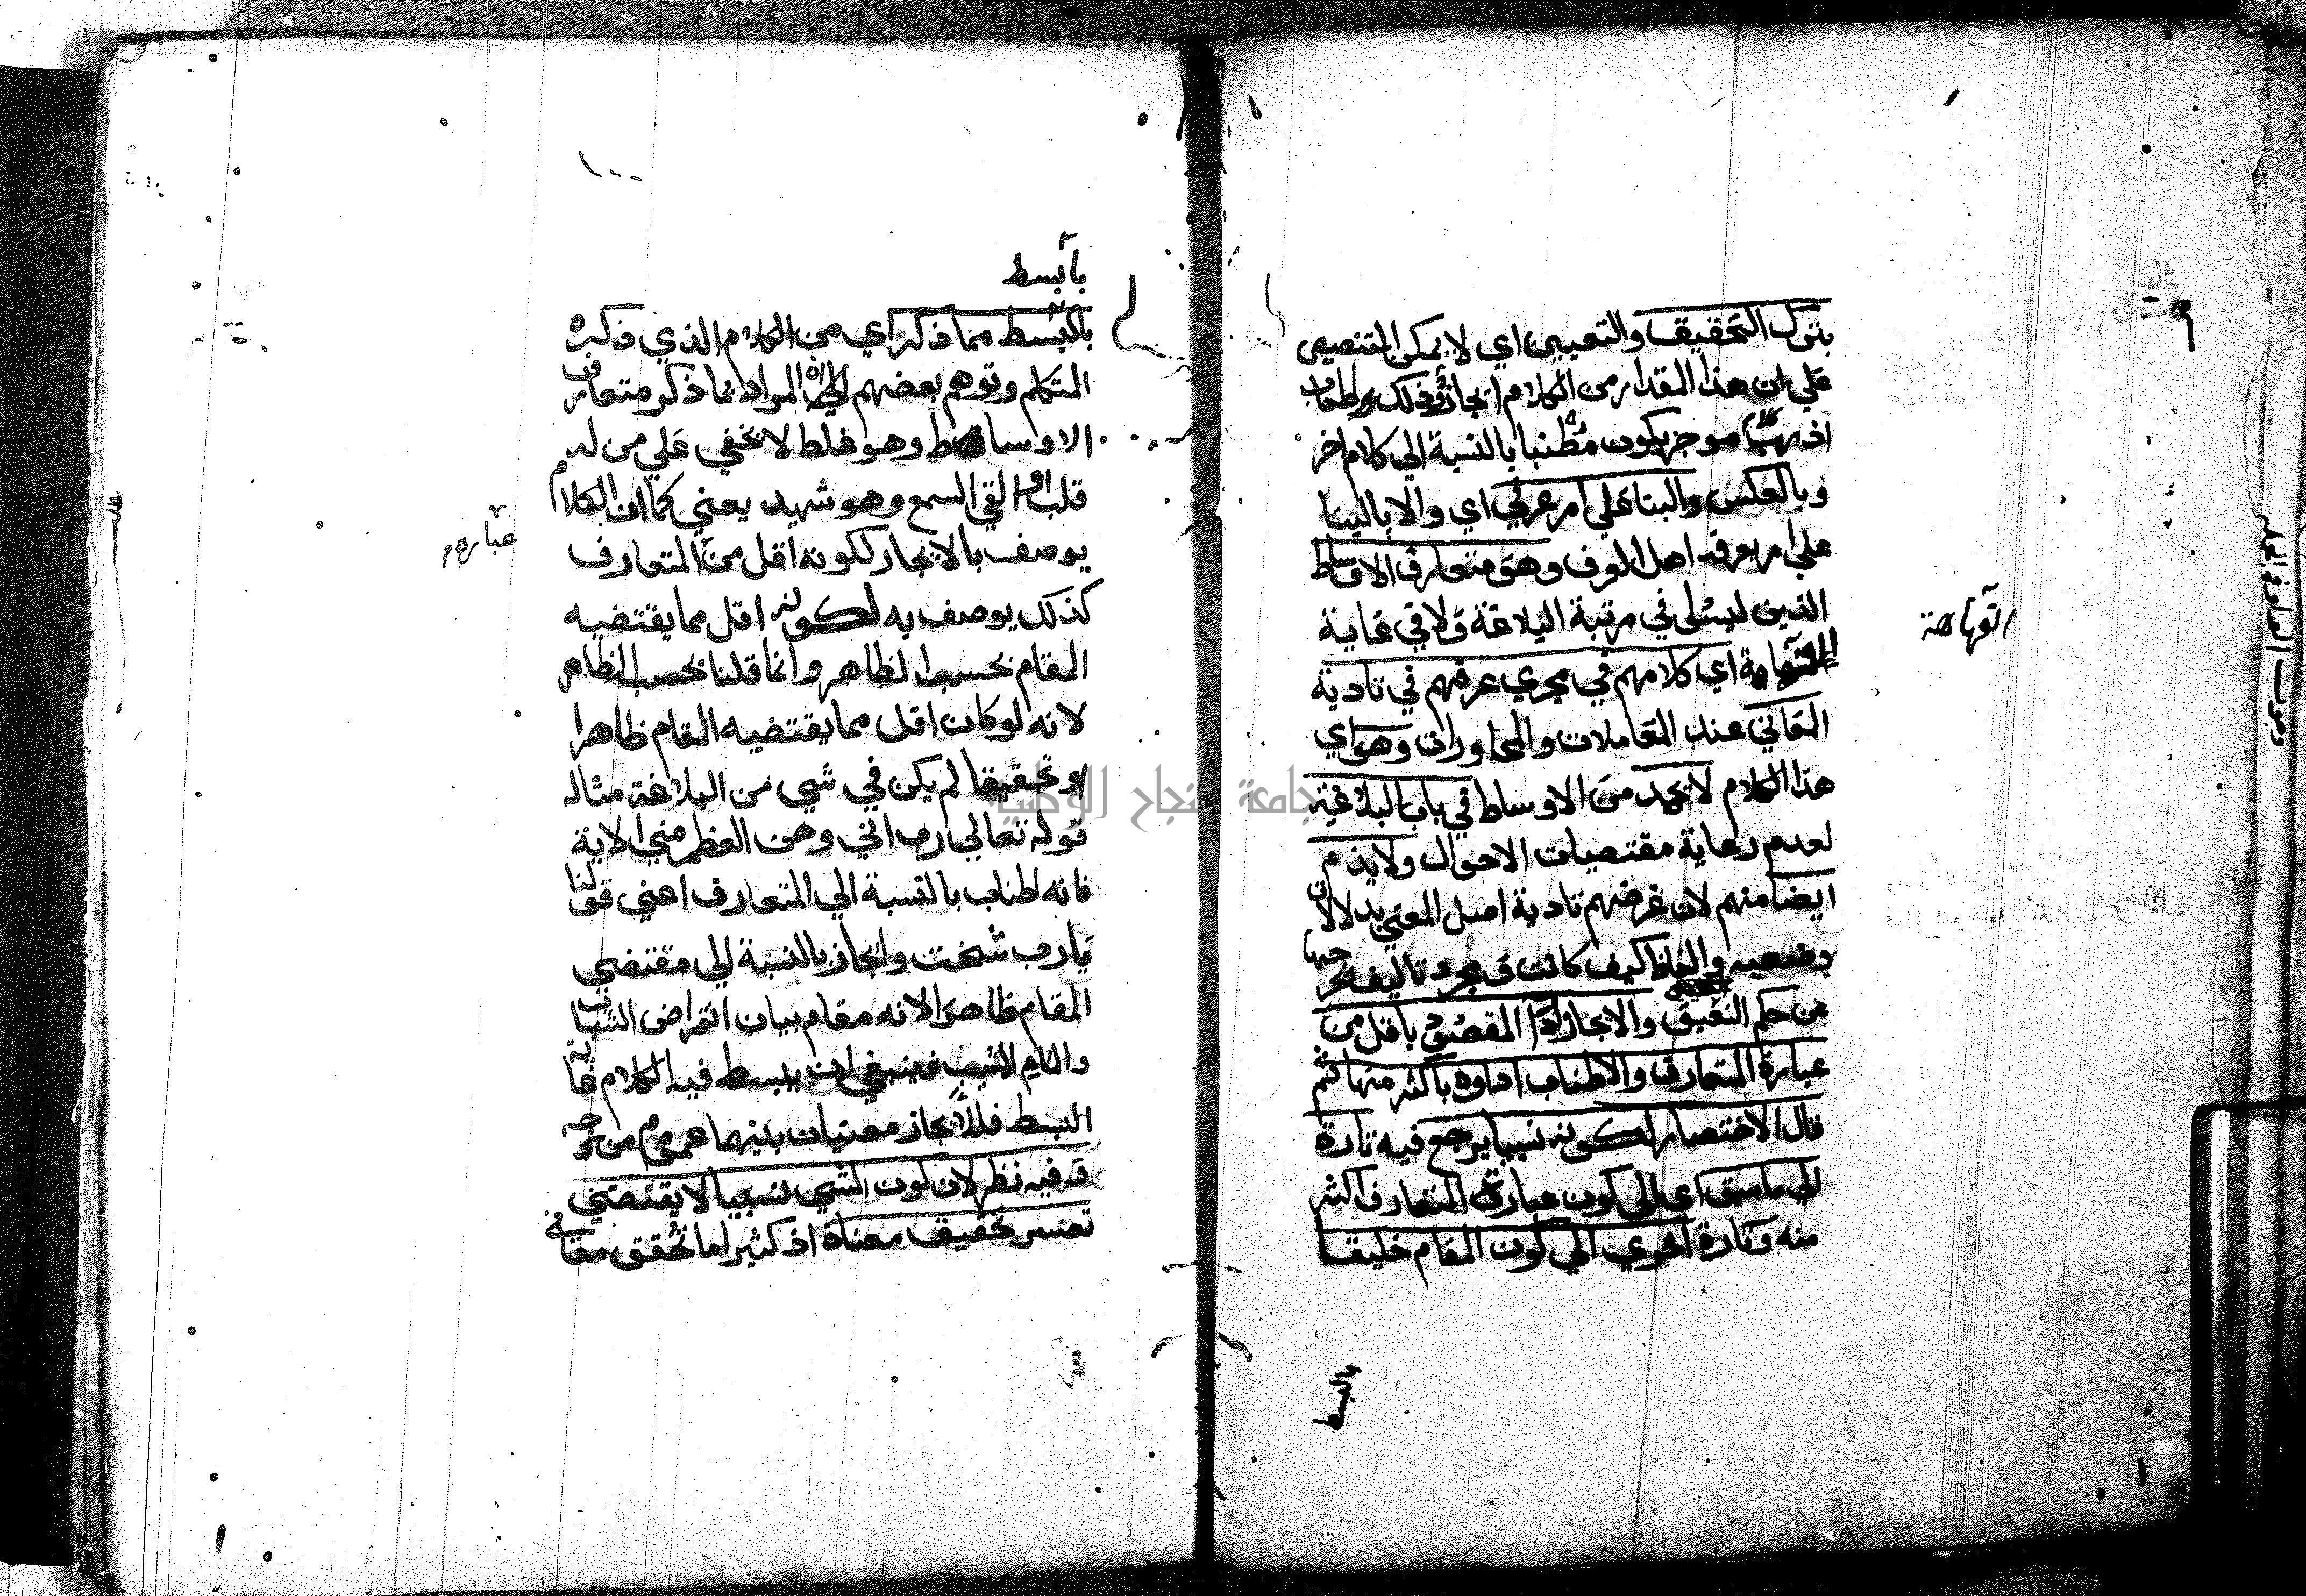 بترك التحقيق والتعيين اي لا يمكن التنصيص
علي ان هذا المقدار من الكلام ايجاز وذلك اطناب
اذ رب موجز يكون مطنبا بالنسبة الي كلام اخر
وبالعكس والبنا علي امر عرفي اي والا بالبنا
علي امر يعرفه اهل العرف وهو متعارف الاوساط
الذين ليسوا في مرتبة البلاغة ولا في غاية
الفهاهة
الفهاهة اي كلامهم في مجري عرفهم في تادية
المعاني عند المعاملات والمحاورات وهو اي
هذا الكلام لا يحمد من الاوساط في باب البلاغة
لعدم رعاية مقتضيات الاحوال ولا يذم
ايضا منهم لان غرضهم تادية اصل المعني بدلالات
وضعيه والفاظ كيف كانت ومجرد تاليف يخرجها
عن حكم النعيق والايجاز اداء المقصود باقل من
عبارة المتعارف والاطناب اداوه باكثر منها ثم
قال الاختصار لكونه نسبيا يرجع فيه تارة
الي ما سبق اي الي كون عبارة المتعارف اكثر
منه وتارة اخري الي كون المقام خليقا
بالبسط
بابسط
بابسط مما ذكر اي من الكلام الذي ذكره
المتكلم وتوهم بعضهم ان المراد بما ذكر متعارف
الاوساط وهو غلط لا يخفي علي من له
قلب او القي السمع وهو شهيد يعني كما ان الكلام
يوصف بالايجاز لكونه اقل من المتعارف
عباره
كذلك يوصف به لكونه اقل مما يقتضيه
المقام بحسب الظاهر وانما قلنا بحسب الظاهر
لانه لو كان اقل مما يقتضيه المقام ظاهرا
وتحقيقا لم يكن في شي من البلاغة مثاله
قوله تعالي رب اني وهن العظم مني الاية
فانه اطناب بالنسبة الي المتعارف اعني قولنا
يارب شخت وايجاز بالنسبة الي مقتضي
المقام ظاهرا لانه مقام بيان انقراض الشباب
والمام الشيب فينبغي ان يبسط فيه الكلام غاية
البسط فللايجاز معنيان بينهما عموم من وجه
وفيه نظر لان كون الشي نسبيا لا يقتضي
تعسر تحقيق معناه اذ كثيرا ما تحقق معاني
جامعة النجاح الوطنية